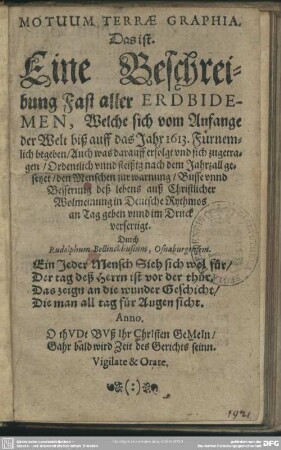 MOTUUM TERRÆ GRAPHIA.
Das ist.
Eine Beschrei-
bung Fast aller ERDBIDE-
MEN, Welche sich vom Anfange
der Welt biß auff das Jahr 1613. Fürnem-
lich begeben / Auch was darauff erfolgt vnd sich zugetra-
gen / Ordentlich vnnd fleißig nach dem Jahrzall ge-
setzet / den Menschen zur warnung / Busse vnnd
Besserung deß lebens auß Christlicher
Wolmeinung in Deutsche Rythmos
an Tag geben vnnd im Druck
verfertigt.
Durch
Rudolphum Bellinckhusium, Osnaburgensem.
Ein Jeder Mensch Sieh sich wol für /
Der tag deß Herrn ist vor der thür.
Das zeign an die wunder Geschicht /
Die man all tag für Augen sicht.
Anno.
O thVDt BVß Ihr ChrIsten GeMeIn /
Gahr bald wird Zeit des Gerichts seinn.
Vigilate & Orate.
1921